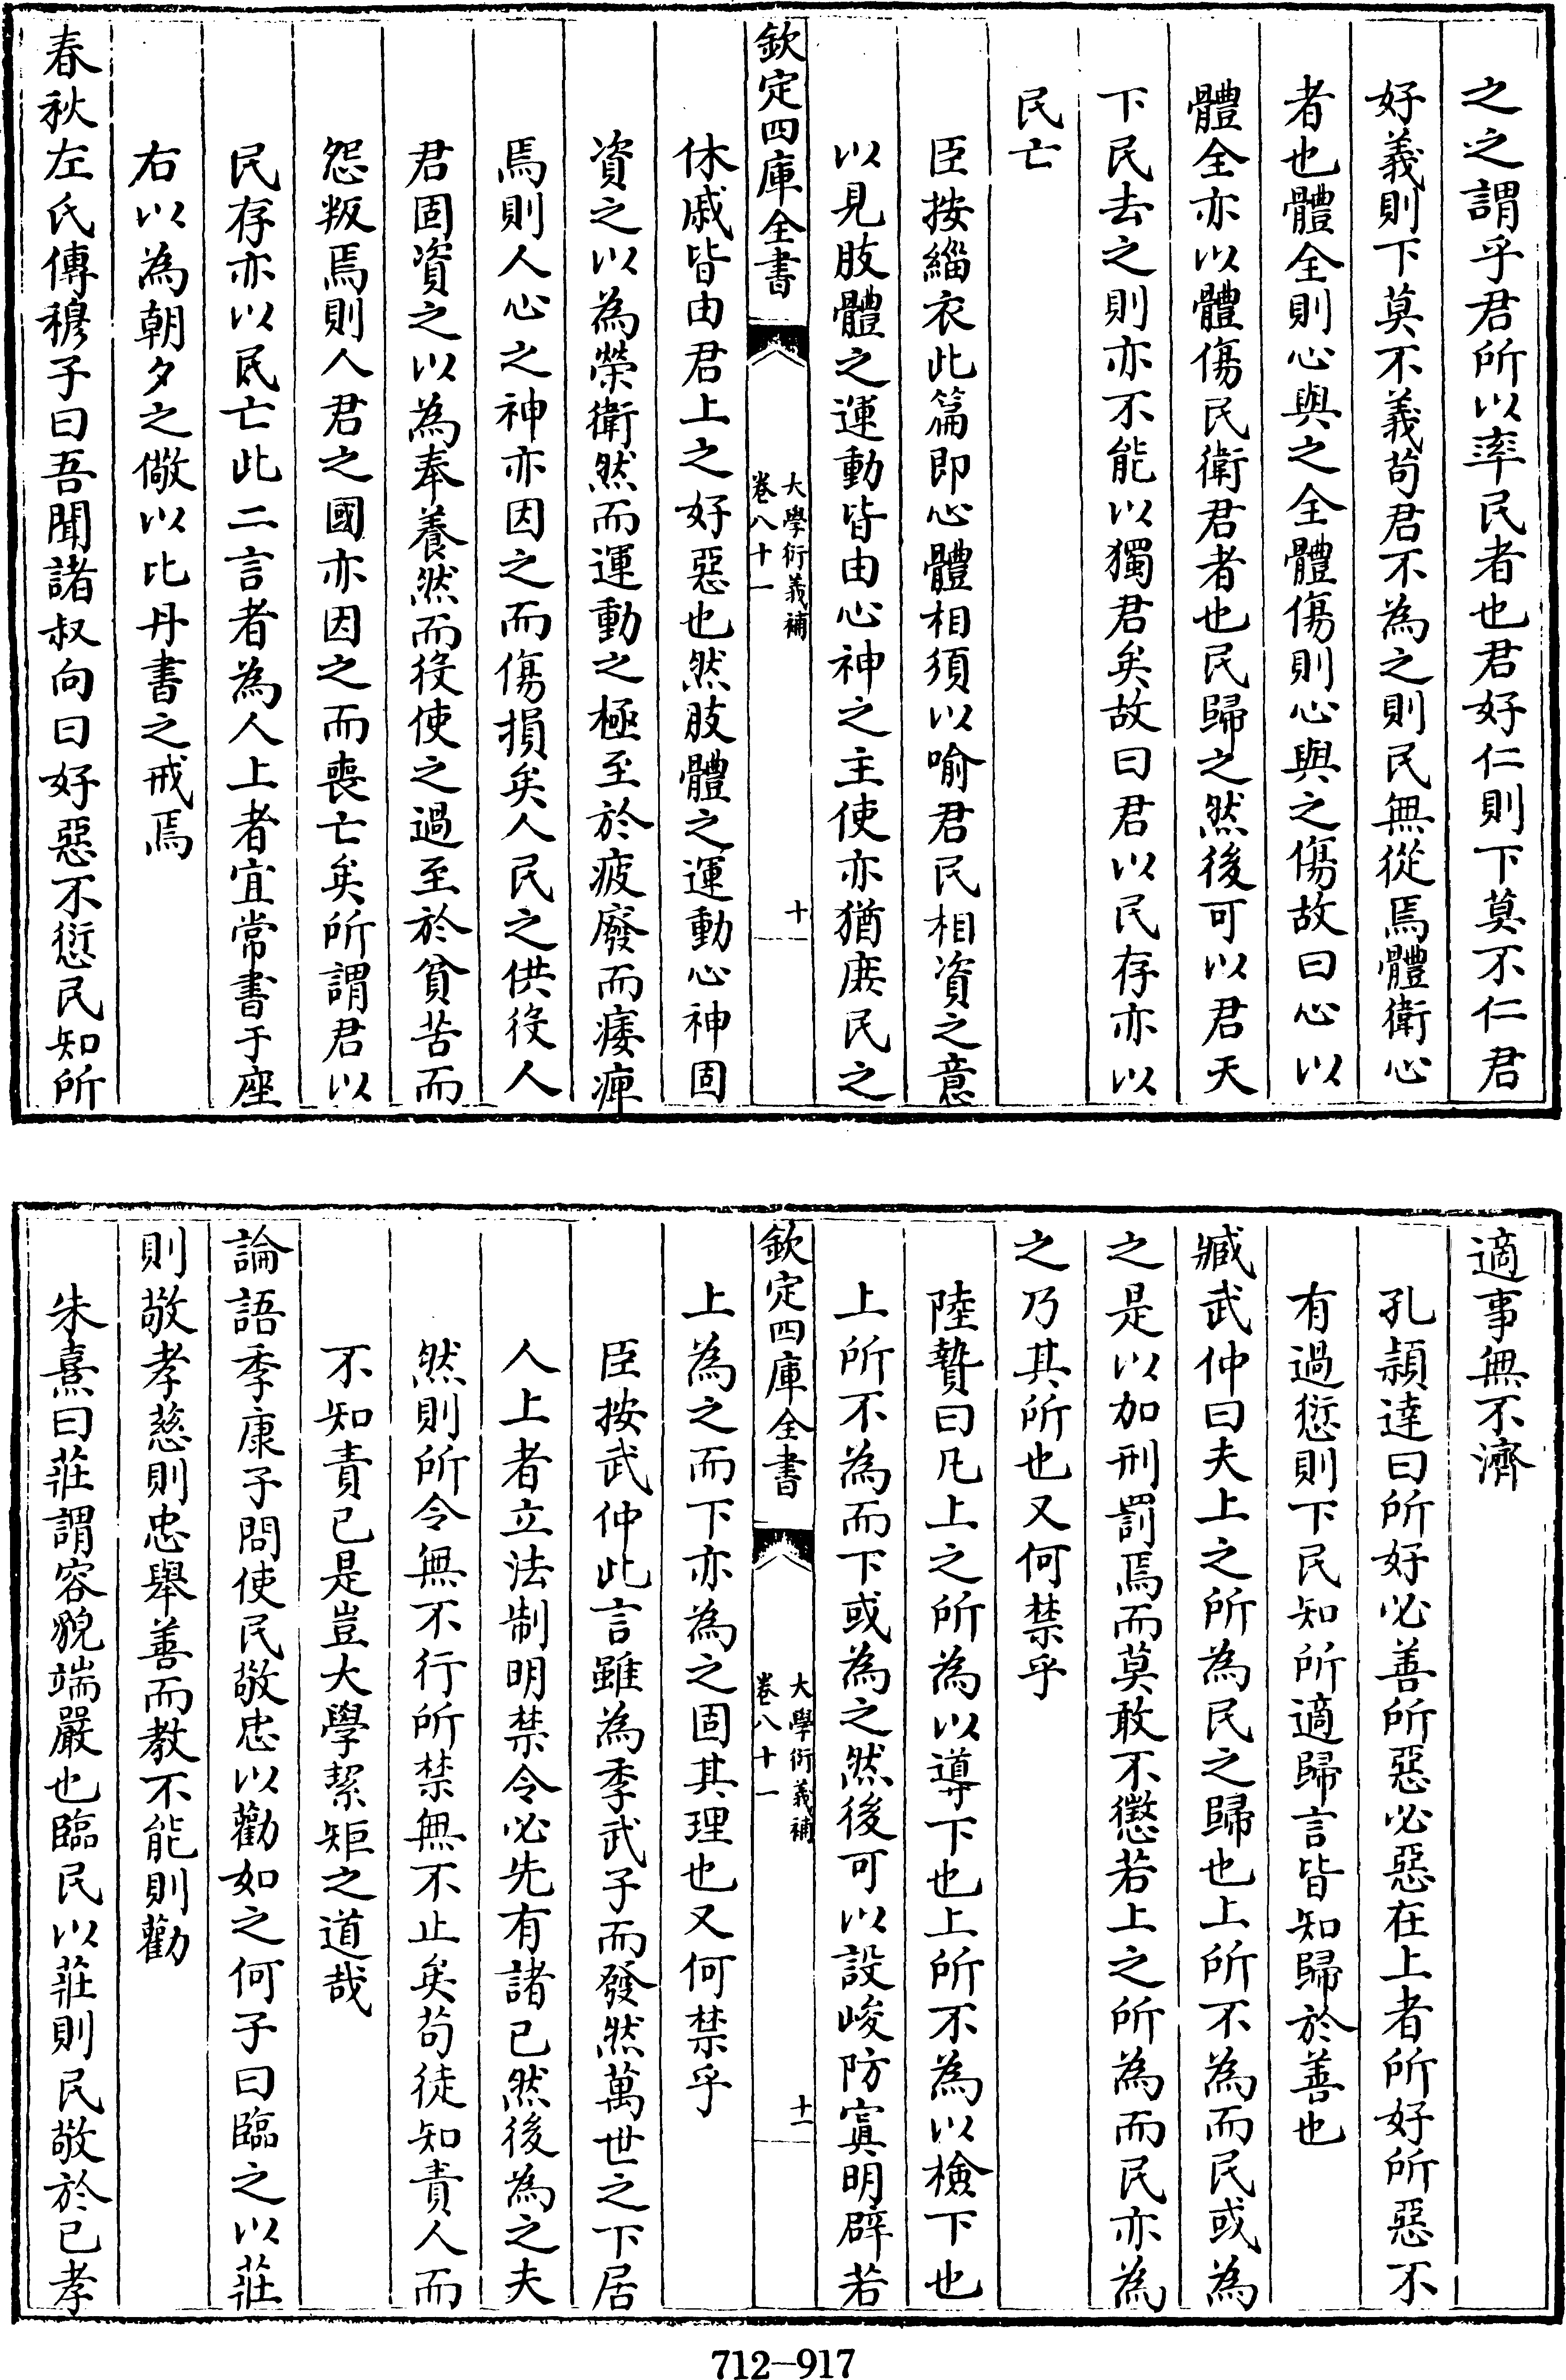 之之謂乎君所以率民者也君好仁則下莫不仁君
好義則下莫不義苟君不為之則民無從焉體衛心
者也體全則心與之全體傷則心與之傷故曰心以
體全亦以體傷民衛君者也民歸之然後可以君天
下民去之則亦不能以獨君矣故曰君以民存亦以
民亡
臣按緇衣此篇即心體相須以喻君民相資之意
以見肢體之運動皆由心神之主使亦猶庶民之
欽定四庫全書
大學衍義補
卷八十一
十
休戚皆由君上之好惡也然肢體之運動心神固
資之以為榮衛然而運動之極至於疲廢而痿痺
焉則人心之神亦因之而傷損矣人民之供役人
君固資之以為奉養然而役使之過至於貧苦而
怨叛焉則人君之國亦因之而喪亡矣所謂君以
民存亦以民亡此二言者為人上者宜常書于座
右以為朝夕之儆以比丹書之戒焉
春秋左氏傳穆子曰吾聞諸叔向曰好惡不愆民知所
適事無不濟
孔頴達曰所好必善所惡必惡在上者所好所惡不
有過愆則下民知所適歸言皆知歸於善也
臧武仲曰夫上之所為民之歸也上所不為而民或為
之是以加刑罰焉而莫敢不懲若上之所為而民亦為
之乃其所也又何禁乎
陸贄曰凡上之所為以導下也上所不為以檢下也
上所不為而下或為之然後可以設峻防寘明辟若
欽定四庫全書
大學衍義補
卷八十一
十一
上為之而下亦為之固其理也又何禁乎
臣按武仲此言雖為季武子而發然萬世之下居
人上者立法制明禁令必先有諸已然後為之夫
然則所令無不行所禁無不止矣苟徒知責人而
不知責已是豈大學絜矩之道哉
論語季康子問使民敬忠以勸如之何子曰臨之以莊
則敬孝慈則忠舉善而教不能則勸
朱熹曰莊謂容貌端嚴也臨民以莊則民敬於已孝
712—917